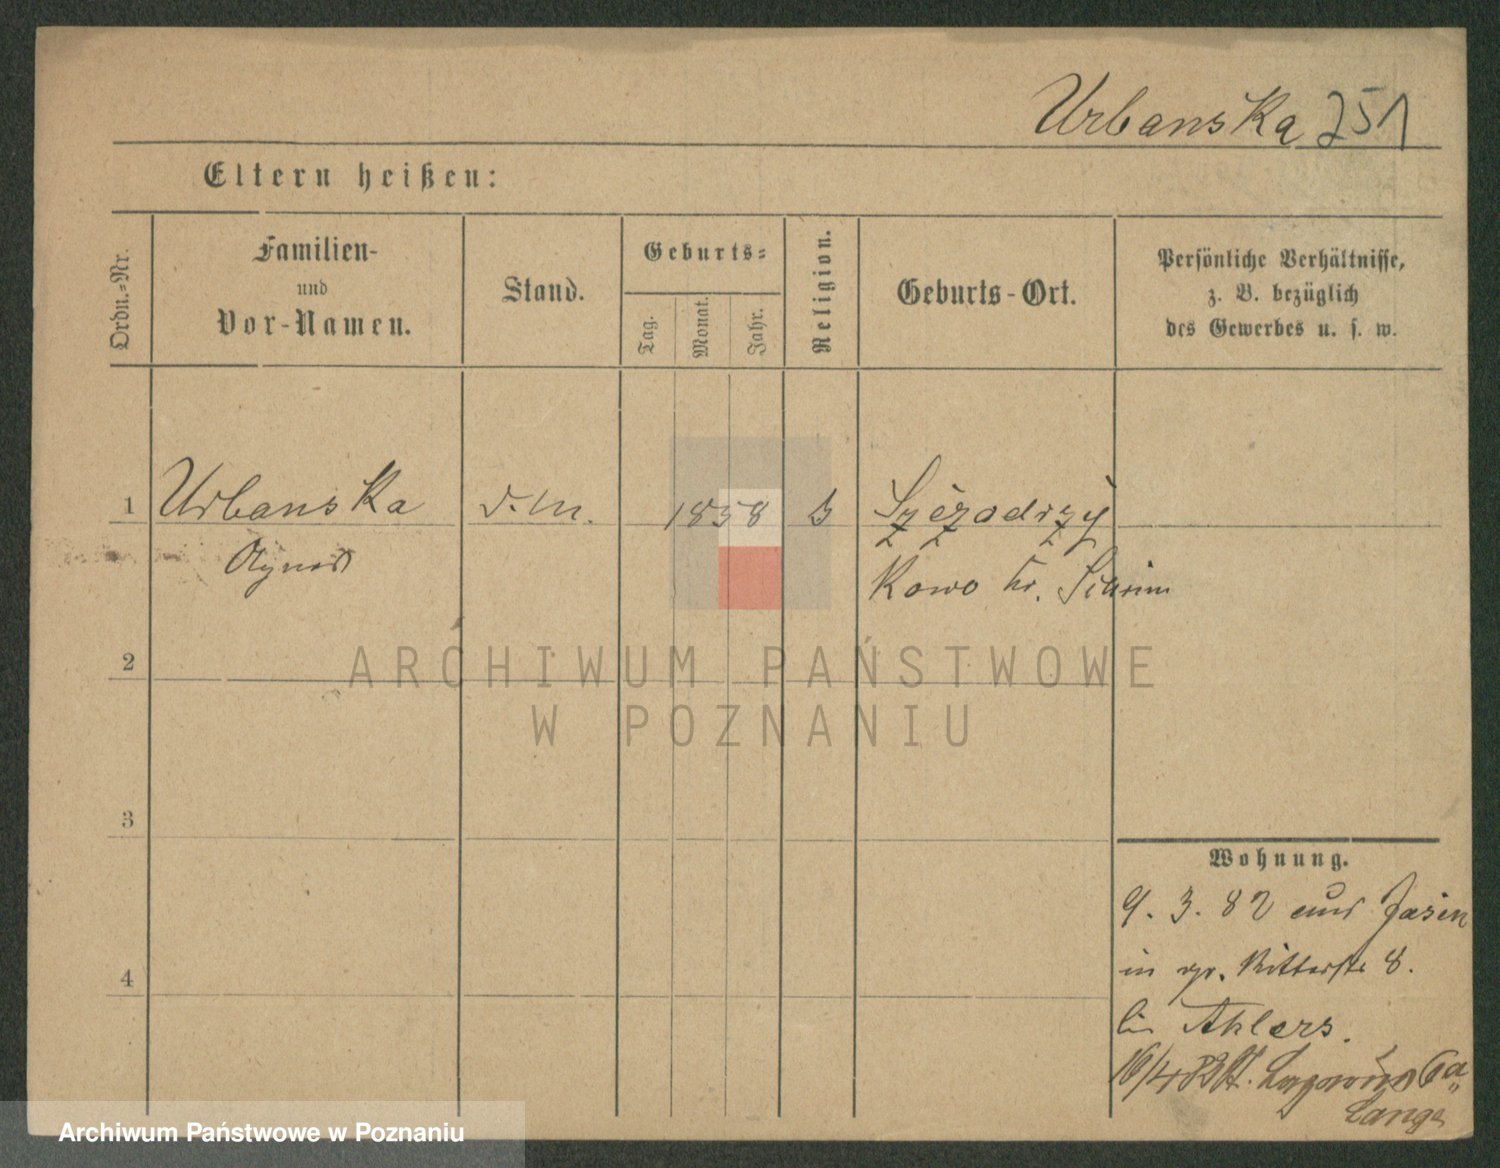 Urbanska 251
Eltern heißen:
Ordn.-Nr.
Familien-
und
Vor-Namen.
Stand.
Geburts-
Tag.
Monat.
Jahr.
Religion.
Geburts-Ort.
Persönliche Verhältnisse,
z. B. bezüglich
des Gewerbes u. s. w.
1 Urbanska 1858
Kowo Kr.
2
3
4
Wohnung.
9. 3. 82 aus Jasin
in gr. Ritterstr 8.
bei Ahlers.
16/4 82
Lange
ARCHIWUM PAŃSTWOWE
W POZNANIU
Archiwum Państwowe w Poznaniu